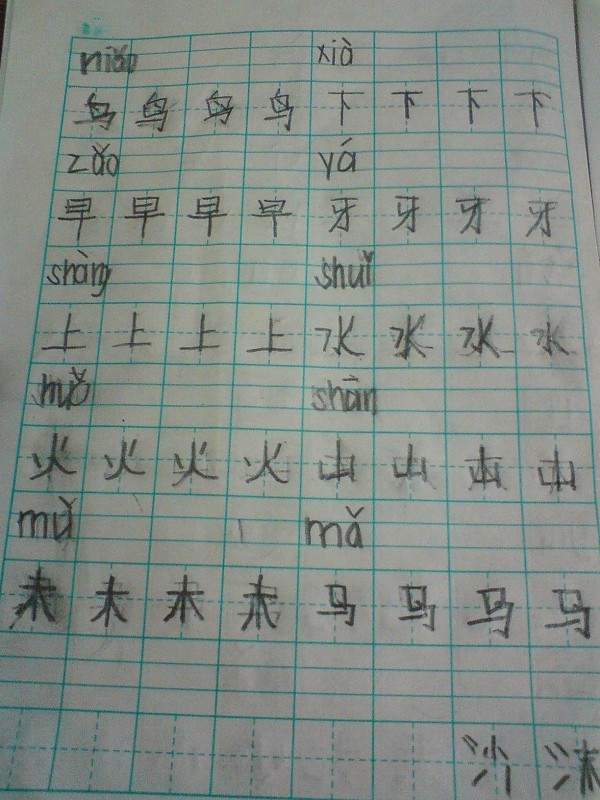 niǎo xià
鸟 鸟 鸟 鸟 下 下 下 下
zǎo yá
早 早 早 早 牙 牙 牙 牙
shàng shuǐ
上 上 上 上 水 水 水 水
shān
火 火 火 火 山 山 山 山
mǔ mǎ
末 末 末 末 马 马 马 马
沙 沫